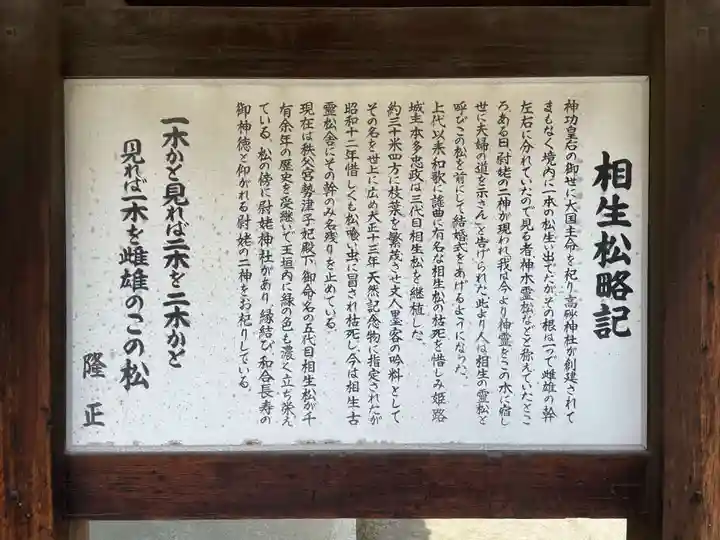 相生松略記
神功皇后の御世に大国主命を祀り高砂神社が創建されて
まもなく境内に一本の松生い出でたがその根は一つで雌雄の幹
左右に分れていたので見る者神木霊松などと称えていたとこ
ろ、ある日、尉姥の二神が現われ「我は今より神霊をこの木に宿し
世に夫婦の道を示さん」と告げられた此より人は相生の霊松と
呼びこの松を前にして結婚式をあげるようになった。
上代以来和歌に謡曲に有名な相生松の枯死を惜しみ姫路
城主本多忠政は三代目相生松を継植した。
約三十米四方に枝葉を繁茂させ文人墨客の吟料として
その名を世上に広め大正十三年天然記念物に指定されたが
昭和十二年惜しくも松喰い虫に冒され枯死し今は相生古
霊松舎にその幹のみ名残りを止めている。
現在は秩父宮勢津子妃殿下御命名の五代目相生松が千
有余年の歴史を受継いで玉垣内に緑の色も濃く立ち栄え
ている、松の傍に尉姥神社があり縁結び、和合長寿の
御神徳と仰がれる尉姥の二神をお祀りしている。
一木かと見れば二木を二木かと
見れば一木を雌雄のこの松
隆正